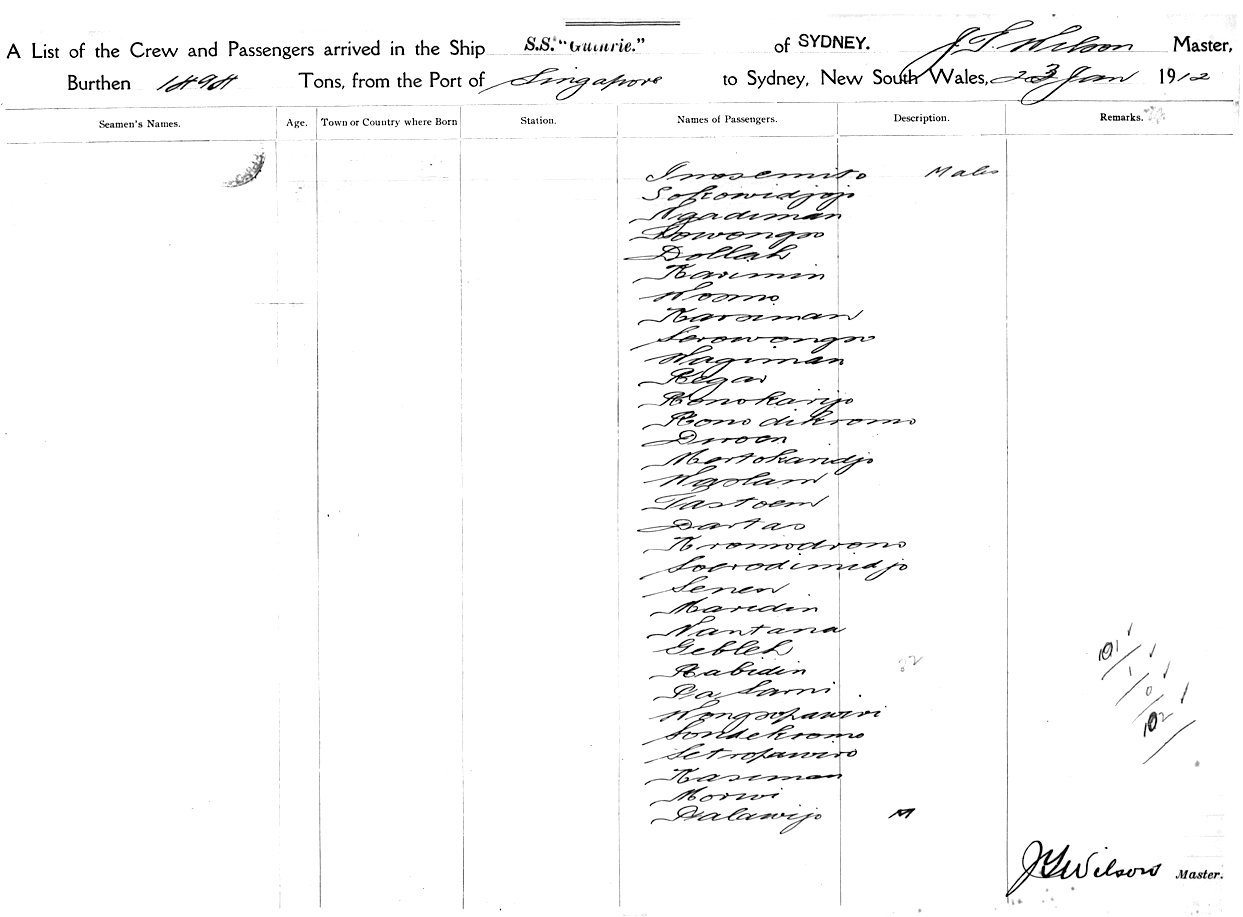 A List of the Crew and Passengers arrived in the Ship S.S. "Guthrie." of SYDNEY. J G Wilson Master,
Burthen 1494 Tons, from the Port of Singapore to Sydney, New South Wales, 23 Jan 1912
Seamen's Names. Age. Town or Country where Born Station. Names of Passengers. Description. Remarks.
Males
Sokowidjojo
Ngadiman
Sowongso
Dollah
Karimin
Wosmo
Karsiman
Serowongso
Wagiman
Regar
Ronokarijo
Rono dikromo
Mertokaridjo
Wgolam
Tastoem
Dartas
Kromodrono
Soerodimidjo
Senen
Maridin
Nantana
Gebleh
Rabidin
Pa Sarni
Wongsopawiri
Sondekromo
Setropawiro
Kasiman
Morwi
Palawijo M
101
1
0
102
J G Wilson Master.